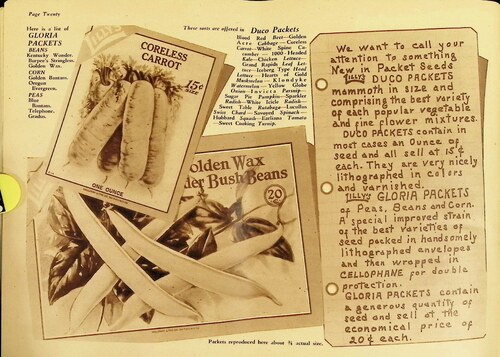 Page Twenty
Here is a list of
GLORIA
PACKETS
BEANS
Kentucky Wonder.
Harper's Stringless.
Golden Wax.
CORN
Golden Bantam.
Oregon
Evergreen.
PEAS
Blue
Bantam.
Telephone.
Gradus.
These sorts are offered in Duco Packets
Blood Red Beet—Golden
Acre Cabbage—Coreless
Carrot—White Spine Cu-
cumber — 1000-Headed
Kale—Chicken Lettuce—
Grand Rapids Leaf Let-
tuce—Iceberg Type Head
Lettuce—Hearts of Gold
Muskmelon — Klondyke
Watermelon—Yellow Globe
Onion—Turnip Parsnip—
Sugar Pie Pumpkin—Sparkler
Radish—White Icicle Radish—
Sweet Table Rutabaga—Lucullus
Swiss Chard—Savoyed Spinach—
Hubbard Squash—Earliana Tomato
—Sweet Cooking Turnip.
LILLY'S
CORELESS
CARROT
15¢
ONE OUNCE
Golden Wax
der Bush Beans
20¢
Packets reproduced here about ¾ actual size.
We want to call your
attention to something
New in Packet Seeds
LILLY'S DUCO PACKETS
mammoth in size and
comprising the best variety
of each popular vegetable
and fine flower mixtures.
DUCO PACKETS contain in
most cases an Ounce of
seed and all sell at 15¢
each. They are very nicely
lithographed in colors
and varnished.
LILLY'S GLORIA PACKETS
of Peas, Beans and Corn.
A special improved strain
of the best varieties of
seed packed in handsomely
lithographed envelopes
and then wrapped in
CELLOPHANE for double
protection.
GLORIA PACKETS contain
a generous quantity of
seed and sell at the
economical price of
20¢ each.